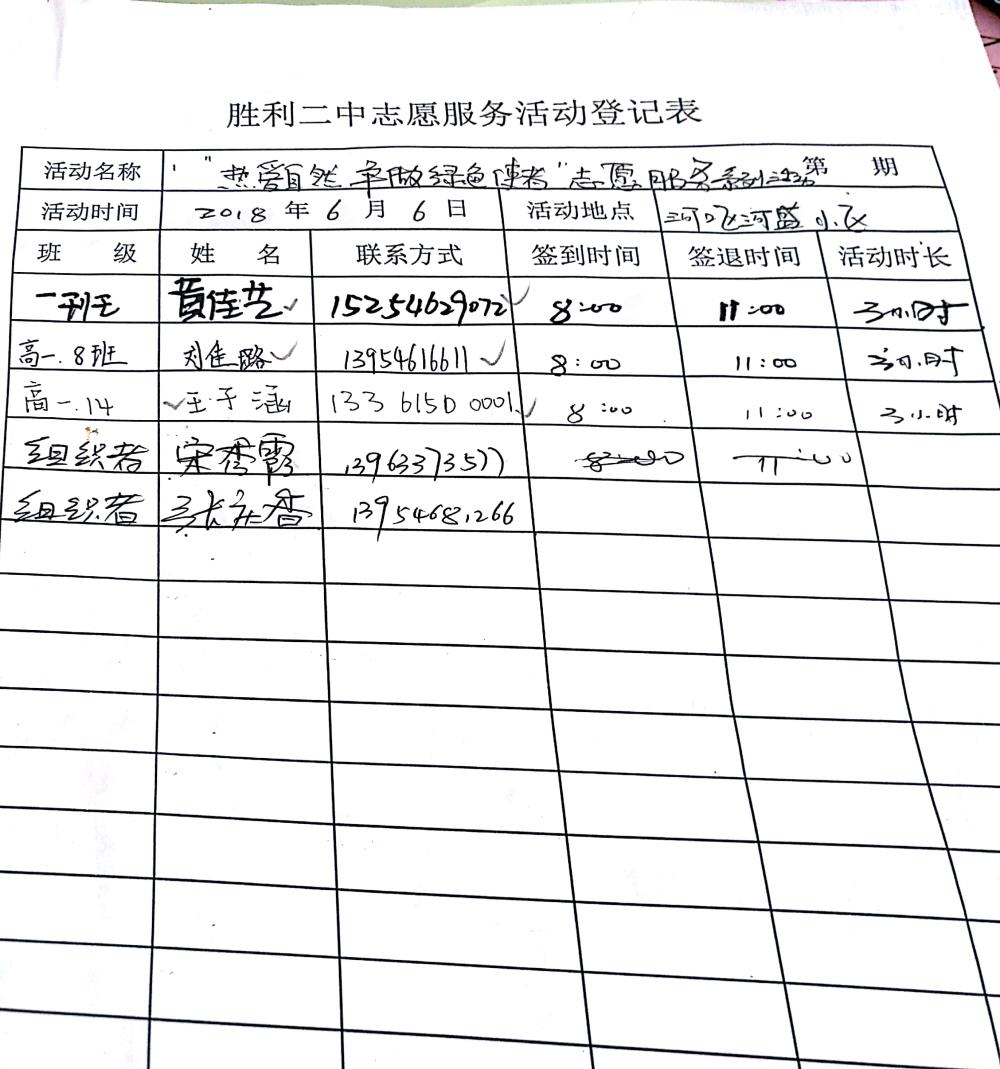 胜利二中志愿服务活动登记表
活动名称 "热爱自然 争做绿色使者"志愿服务系列活动 第 期
活动时间 2018 年 6 月 6 日 活动地点 河口区河盛小区
班 级 姓 名 联系方式 签到时间 签退时间 活动时长
黄佳艺 15254629072 8:00 11:00 3小时
高一.8班 刘佳璐 13954616611 8:00 11:00 3小时
高一.14 王子涵 133 6150 0001 8:00 11:00 3小时
组织者 宋秀霞 13963373577 8:00 11:00
组织者 张 香 1395468,266